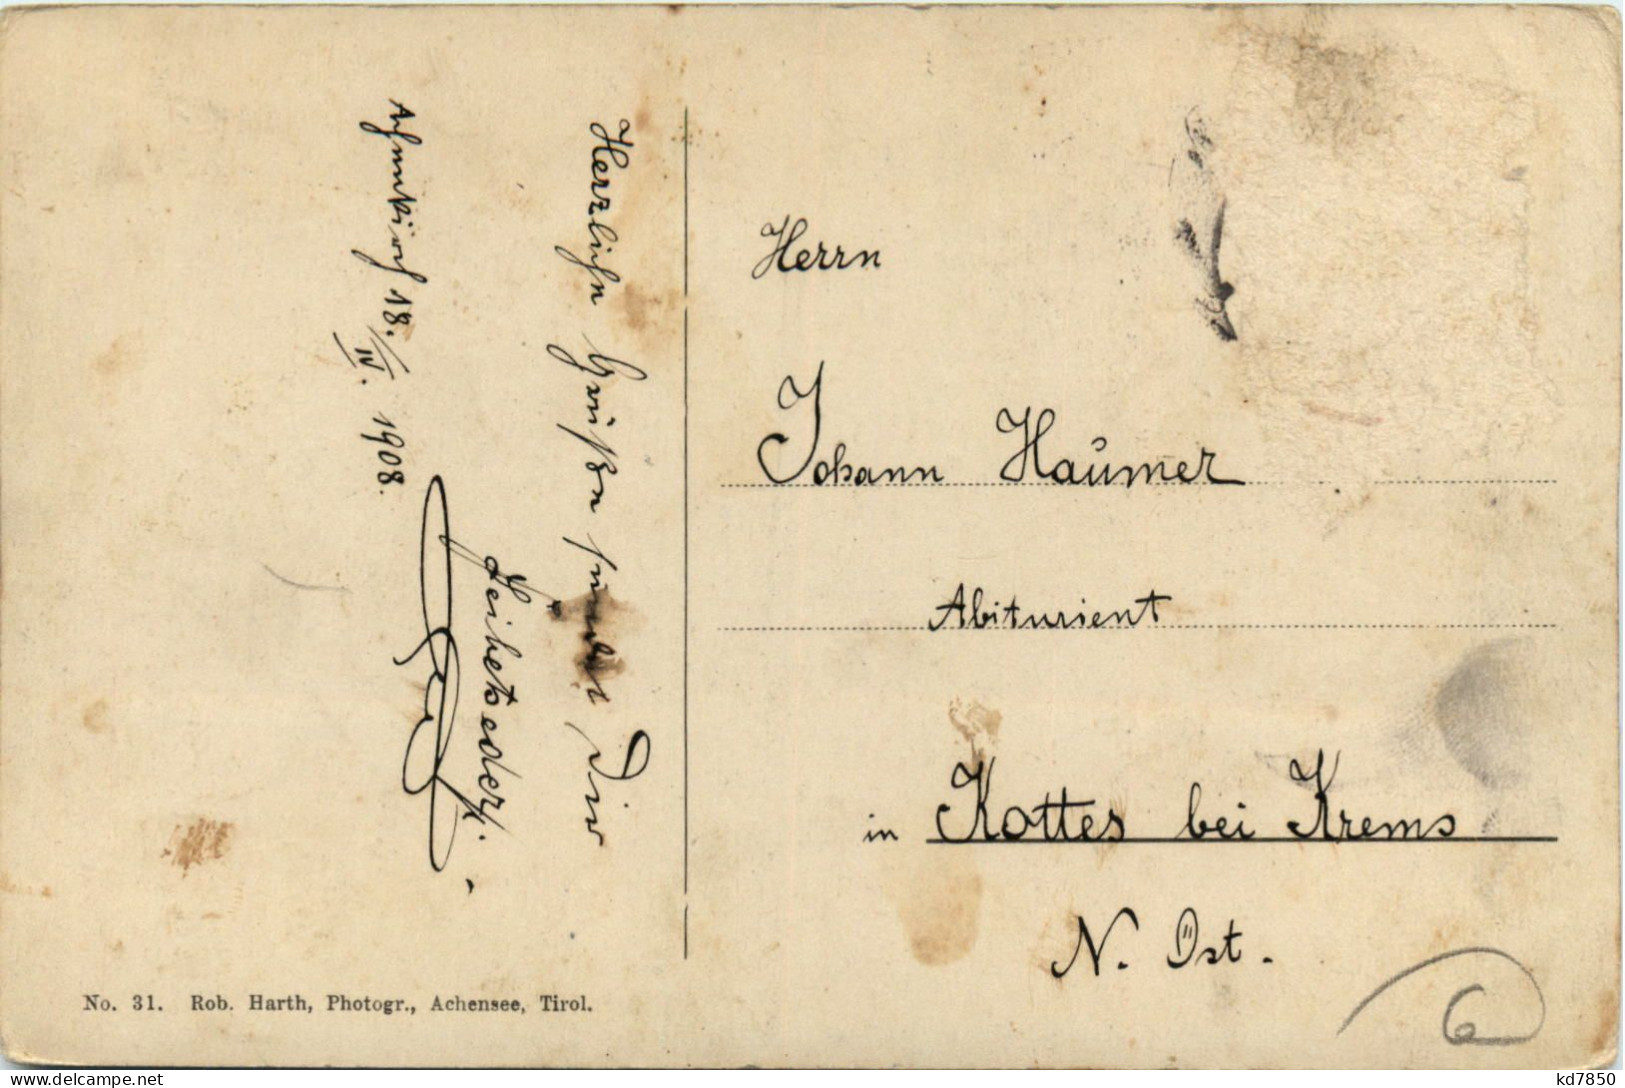 Herzlichen Grüßen sendet Dir
Achenkirch 18./IV. 1908.
Herrn
Johann Haumer
Abiturient
in Kottes bei Krems
N. Öst.
6
No. 31. Rob. Harth, Photogr., Achensee, Tirol.
kd7850